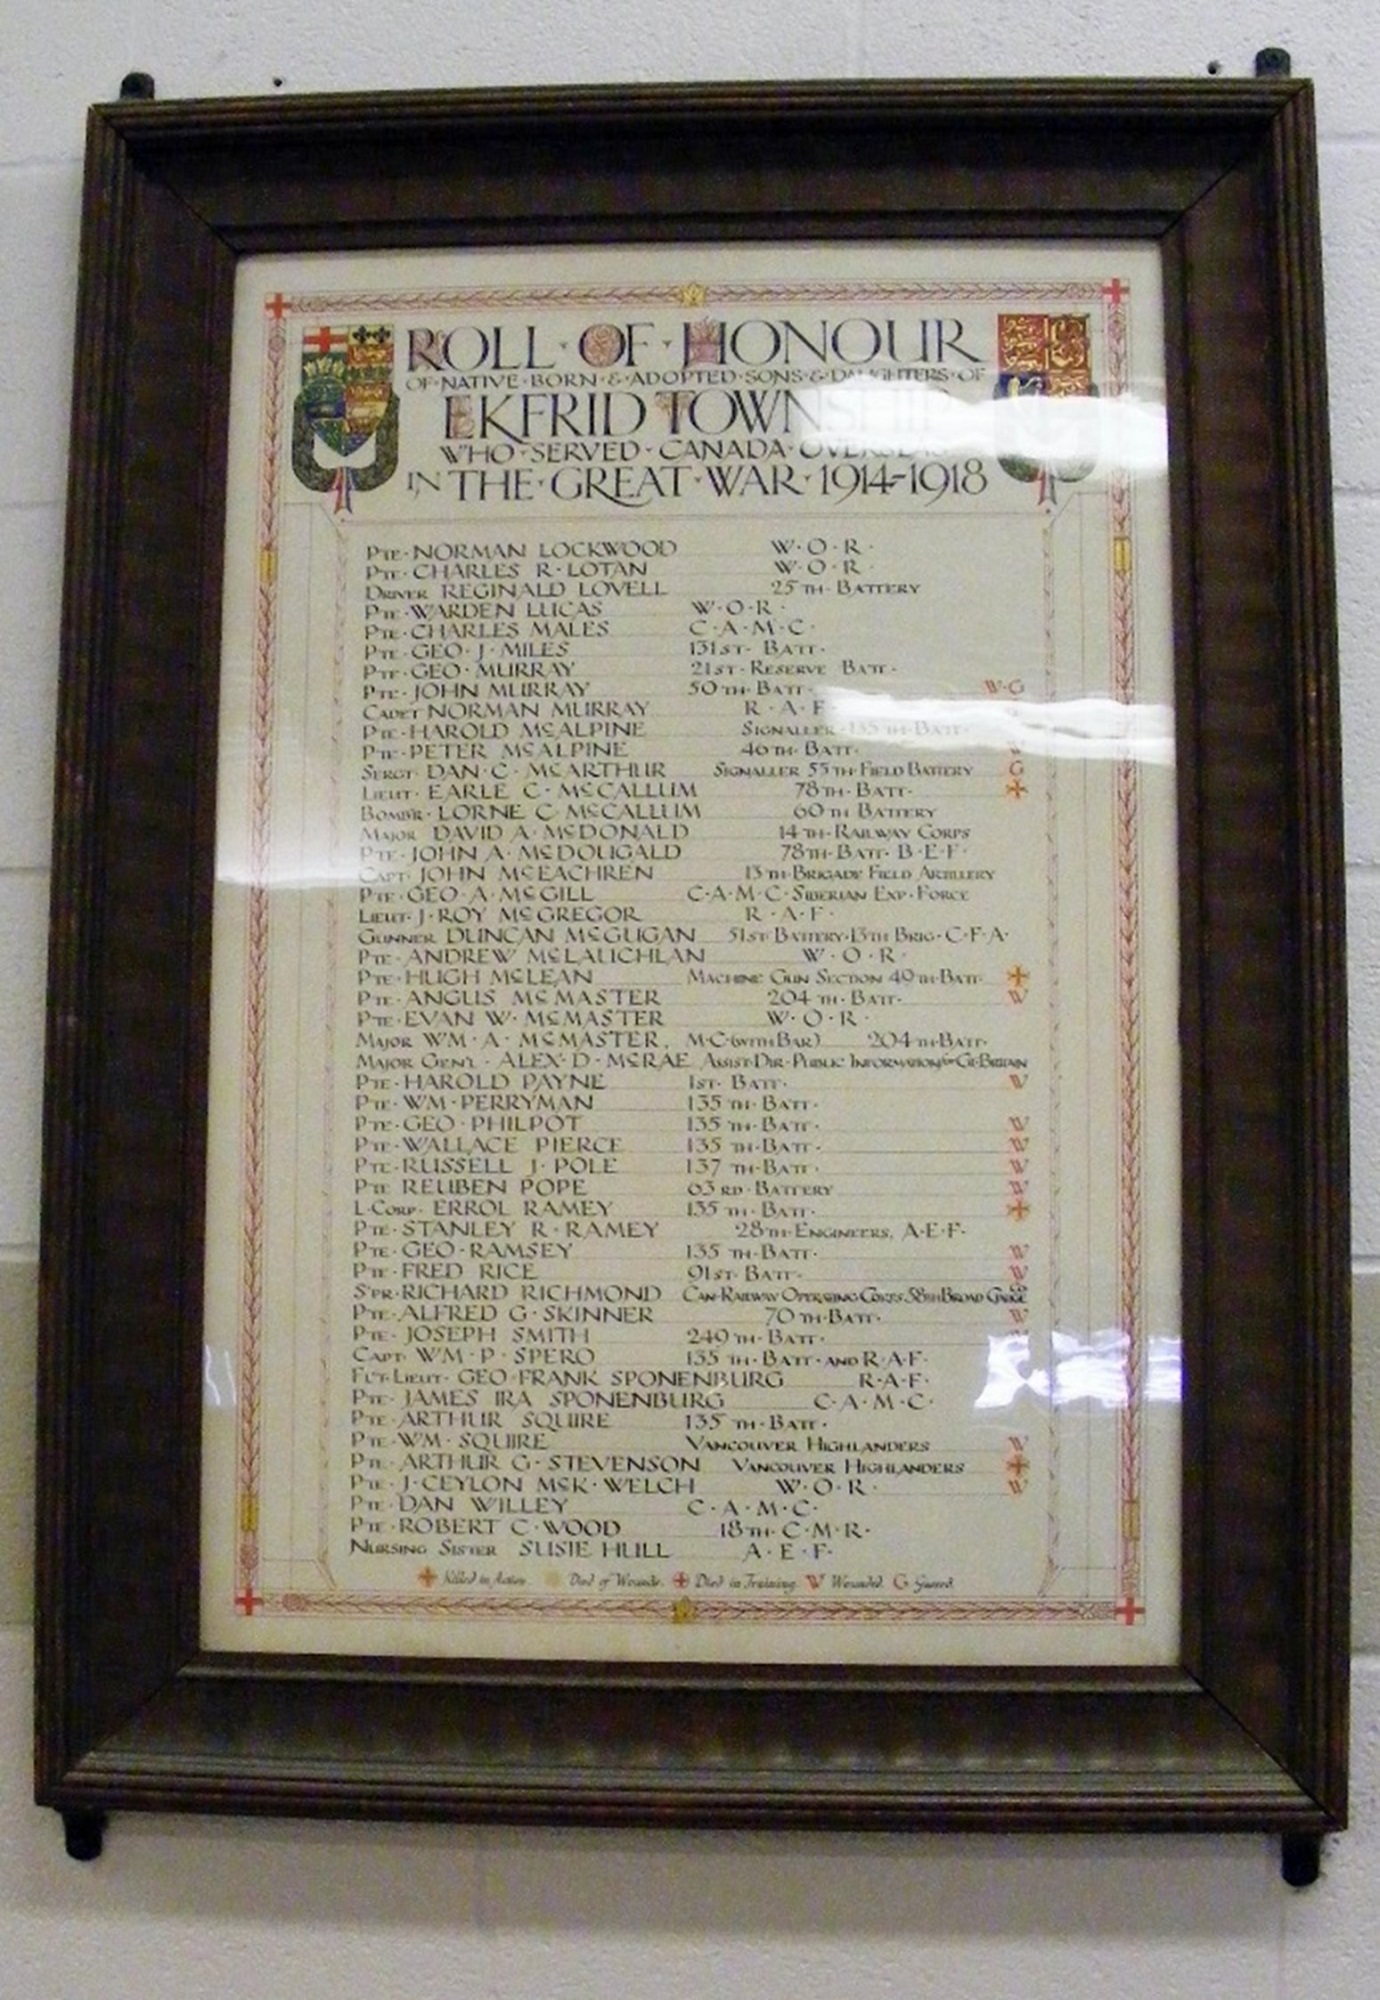 ROLL · OF · HONOUR
OF · NATIVE · BORN · & · ADOPTED · SONS · & · DAUGHTERS · OF
EKFRID TOWNSHIP
WHO · SERVED · CANADA · OVERSEAS
IN THE · GREAT · WAR · 1914-1918
PTE · NORMAN LOCKWOOD W · O · R ·
PTE · CHARLES R · LOTAN W · O · R ·
DRIVER REGINALD LOVELL 25TH · BATTERY
PTE · WARDEN LUCAS W · O · R ·
PTE · CHARLES MALES C · A · M · C ·
PTE · GEO · J · MILES 131ST · BATT ·
PTE · GEO · MURRAY 21ST · RESERVE BATT ·
PTE · JOHN MURRAY 50TH · BATT · W · G
CADET NORMAN MURRAY R · A · F ·
PTE · HAROLD McALPINE SIGNALLER · 135TH · BATT ·
PTE · PETER McALPINE 46TH · BATT · W
SERGT · DAN · C · McARTHUR SIGNALLER 55TH · FIELD BATTERY G
LIEUT · EARLE C · McCALLUM 78TH · BATT ·
BOMB'R · LORNE C · McCALLUM 60TH BATTERY
MAJOR DAVID A · McDONALD 14TH · RAILWAY CORPS
PTE · JOHN A · McDOUGALD 78TH · BATT · B · E · F ·
CAPT · JOHN McEACHREN 13TH · BRIGADE FIELD ARTILLERY
PTE · GEO · A · McGILL C · A · M · C · SIBERIAN EXP · FORCE
LIEUT · J · ROY McGREGOR R · A · F ·
GUNNER DUNCAN McGUGAN 51ST · BATTERY · 13TH BRIG · C · F · A ·
PTE · ANDREW McLAUCHLAN W · O · R ·
PTE · HUGH McLEAN MACHINE GUN SECTION 49TH · BATT ·
PTE · ANGUS McMASTER 204TH · BATT · W
PTE · EVAN W · McMASTER W · O · R ·
MAJOR WM · A · McMASTER, M · C · (WITH BAR) 204TH · BATT ·
MAJOR GEN'L · ALEX · D · McRAE ASSIST · DIR · PUBLIC INFORMATION for GT · BRITAIN
PTE · HAROLD PAYNE 1ST · BATT · W
PTE · WM · PERRYMAN 135TH · BATT ·
PTE · GEO · PHILPOT 135TH · BATT · W
PTE · WALLACE PIERCE 135TH · BATT · W
PTE · RUSSELL J · POLE 137TH · BATT · W
PTE REUBEN POPE 63RD · BATTERY W
L · CORP · ERROL RAMEY 135TH · BATT ·
PTE · STANLEY R · RAMEY 28TH · ENGINEERS, A · E · F ·
PTE · GEO · RAMSEY 135TH · BATT · W
PTE · FRED RICE 91ST · BATT · W
S'PR · RICHARD RICHMOND CAN · RAILWAY OPERATING CORPS 58TH BROAD GAUGE
PTE · ALFRED G · SKINNER 70TH · BATT · W
PTE · JOSEPH SMITH 249TH · BATT ·
CAPT · WM · P · SPERO 135TH · BATT · AND R · A · F ·
FL'T · LIEUT · GEO · FRANK SPONENBURG R · A · F ·
PTE · JAMES IRA SPONENBURG C · A · M · C ·
PTE · ARTHUR SQUIRE 135TH · BATT ·
PTE · WM · SQUIRE VANCOUVER HIGHLANDERS W
PTE · ARTHUR G · STEVENSON VANCOUVER HIGHLANDERS
PTE · J · CEYLON McK · WELCH W · O · R · W
PTE · DAN WILLEY C · A · M · C ·
PTE · ROBERT C · WOOD 18TH · C · M · R ·
NURSING SISTER SUSIE HULL A · E · F ·
Killed in Action. Died of Wounds. Died in Training. W Wounded. G Gassed.